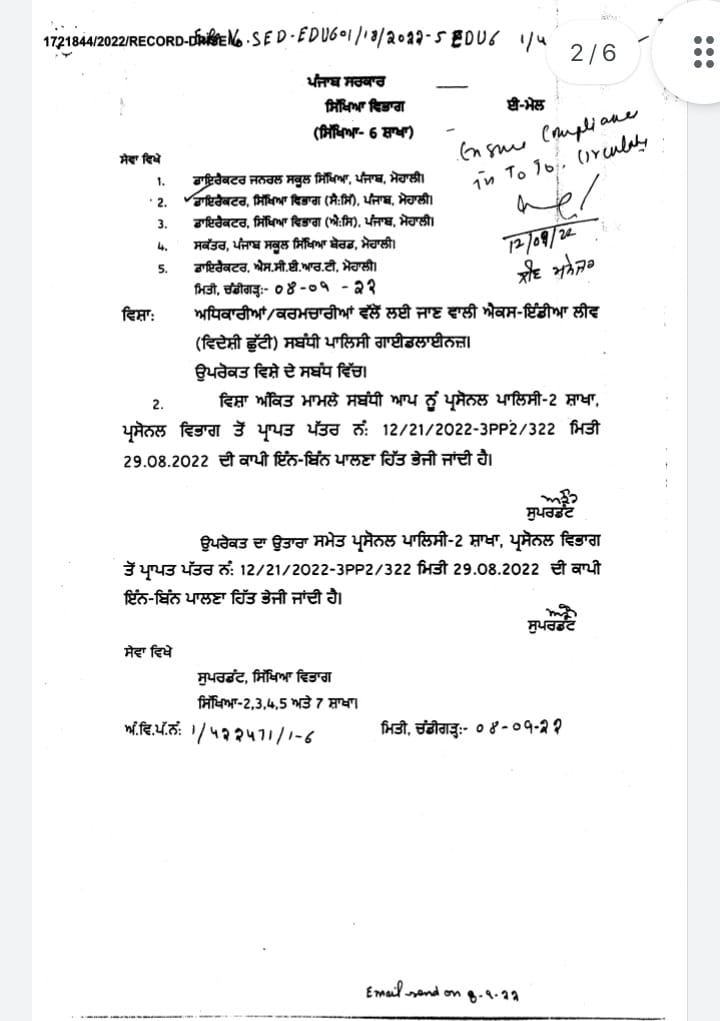 1721844/2022/RECORD-
No. SED-EDU601/18/2022-5EDU6 1/4
2/6
ਪੰਜਾਬ ਸਰਕਾਰ
ਸਿੱਖਿਆ ਵਿਭਾਗ
ਈ-ਮੇਲ
(ਸਿੱਖਿਆ- 6 ਸ਼ਾਖਾ)
Ensure Compliance
in To To. Circulate
12/09/22
ਲੀਵ ਮਨੇਜਰ
ਸੇਵਾ ਵਿਖੇ
1. ਡਾਇਰੈਕਟਰ ਜਨਰਲ ਸਕੂਲ ਸਿੱਖਿਆ, ਪੰਜਾਬ, ਮੋਹਾਲੀ।
2. ਡਾਇਰੈਕਟਰ, ਸਿੱਖਿਆ ਵਿਭਾਗ (ਸੈ:ਸਿ), ਪੰਜਾਬ, ਮੋਹਾਲੀ।
3. ਡਾਇਰੈਕਟਰ, ਸਿੱਖਿਆ ਵਿਭਾਗ (ਐ:ਸਿ), ਪੰਜਾਬ, ਮੋਹਾਲੀ।
4. ਸਕੱਤਰ, ਪੰਜਾਬ ਸਕੂਲ ਸਿੱਖਿਆ ਬੋਰਡ, ਮੋਹਾਲੀ।
5. ਡਾਇਰੈਕਟਰ, ਐਸ.ਸੀ.ਈ.ਆਰ.ਟੀ, ਮੋਹਾਲੀ।
ਮਿਤੀ, ਚੰਡੀਗੜ੍ਹ:- 08-09-22
ਵਿਸ਼ਾ: ਅਧਿਕਾਰੀਆਂ/ਕਰਮਚਾਰੀਆਂ ਵੱਲੋਂ ਲਈ ਜਾਣ ਵਾਲੀ ਐਕਸ-ਇੰਡੀਆ ਲੀਵ
(ਵਿਦੇਸ਼ੀ ਛੁੱਟੀ) ਸਬੰਧੀ ਪਾਲਿਸੀ ਗਾਈਡਲਾਈਨਜ਼।
ਉਪਰੋਕਤ ਵਿਸ਼ੇ ਦੇ ਸਬੰਧ ਵਿੱਚ।
2. ਵਿਸ਼ਾ ਅੰਕਿਤ ਮਾਮਲੇ ਸਬੰਧੀ ਆਪ ਨੂੰ ਪ੍ਰਸੋਨਲ ਪਾਲਿਸੀ-2 ਸ਼ਾਖਾ,
ਪ੍ਰਸੋਨਲ ਵਿਭਾਗ ਤੋਂ ਪ੍ਰਾਪਤ ਪੱਤਰ ਨੰ: 12/21/2022-3PP2/322 ਮਿਤੀ
29.08.2022 ਦੀ ਕਾਪੀ ਇੰਨ-ਬਿੰਨ ਪਾਲਣਾ ਹਿੱਤ ਭੇਜੀ ਜਾਂਦੀ ਹੈ।
ਸੁਪਰਡੰਟ
ਉਪਰੋਕਤ ਦਾ ਉਤਾਰਾ ਸਮੇਤ ਪ੍ਰਸੋਨਲ ਪਾਲਿਸੀ-2 ਸ਼ਾਖਾ, ਪ੍ਰਸੋਨਲ ਵਿਭਾਗ
ਤੋਂ ਪ੍ਰਾਪਤ ਪੱਤਰ ਨੰ: 12/21/2022-3PP2/322 ਮਿਤੀ 29.08.2022 ਦੀ ਕਾਪੀ
ਇੰਨ-ਬਿੰਨ ਪਾਲਣਾ ਹਿੱਤ ਭੇਜੀ ਜਾਂਦੀ ਹੈ।
ਸੁਪਰਡੰਟ
ਸੇਵਾ ਵਿਖੇ
ਸੁਪਰਡੰਟ, ਸਿੱਖਿਆ ਵਿਭਾਗ
ਸਿੱਖਿਆ-2,3,4,5 ਅਤੇ 7 ਸ਼ਾਖਾ।
ਅੰ.ਵਿ.ਪੱ.ਨੰ: 1/422471/1-6 ਮਿਤੀ, ਚੰਡੀਗੜ੍ਹ:- 08-09-22
Email send on 8-9-22